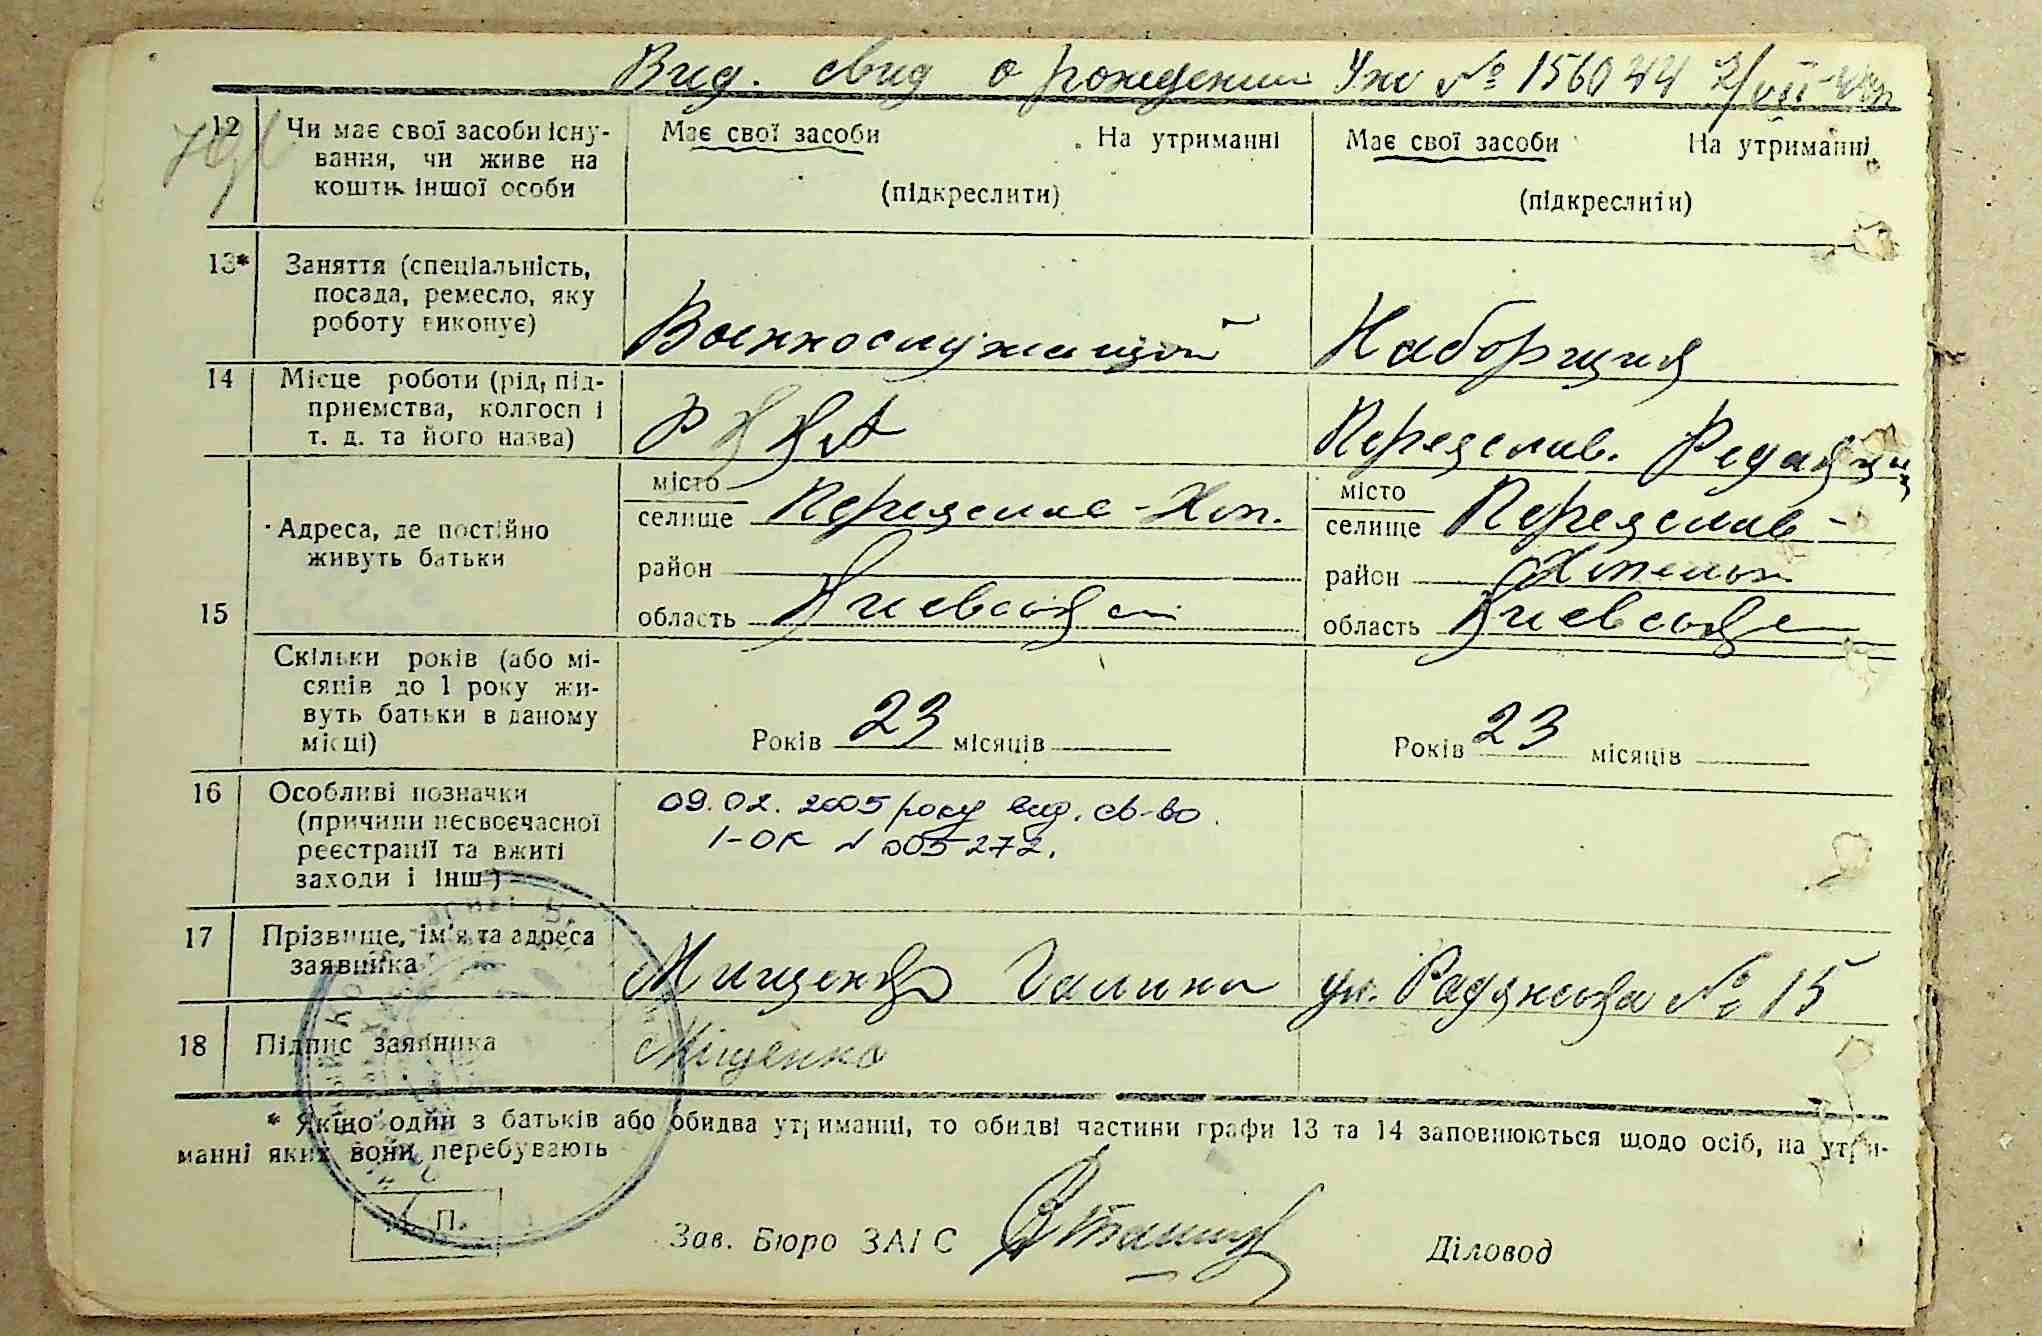 Вид. свид о рождении Уж № 156044 2/VII-
12 Чи має свої засоби існу-
вання, чи живе на
кошти іншої особи
Має свої засоби На утриманні
(підкреслити)
Має свої засоби На утриманні
(підкреслити)
13* Заняття (спеціальність,
посада, ремесло, яку
роботу виконує)
Военнослужащий
Наборщик
14 Місце роботи (рід, під-
приємства, колгосп і
т. д. та його назва)
РККА
Переяслав. Редакции
15
Адреса, де постійно
живуть батьки
місто
селище Переяслав-Хм.
район
область Киевская
місто
селище Переяслав-
район Хмельн
область Киевская
Скільки років (або мі-
сяців до 1 року жи-
вуть батьки в даному
місці)
Років 23 місяців
Років 23 місяців
16 Особливі позначки
(причини несвоєчасної
реєстрації та вжиті
заходи і інш.)
09.02.2005 року вид. св-во
1-ОК N 005272.
17 Прізвище, ім'я та адреса
заявника
Мищенко Галина ул. Радянська № 15
18 Підпис заявника
Міщенко
* Якщо один з батьків або обидва утриманці, то обидві частини графи 13 та 14 заповнюються щодо осіб, на утри-
манні яких вони перебувають
М. П.
Зав. Бюро ЗАГС
Діловод